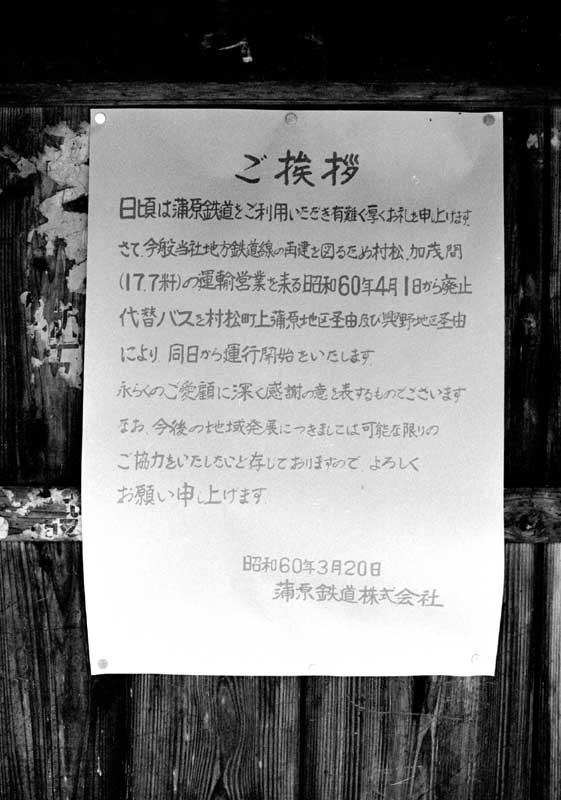 ご挨拶
日頃は蒲原鉄道をご利用いただき有難く厚くお礼を申し上げます。
さて、今般当社地方鉄道線の再建を図るため村松、加茂間
(17.7粁)の運輸営業を来る昭和60年4月1日から廃止
代替バスを村松町上蒲原地区経由及び奥野地区経由
により、同日から運行開始をいたします。
永らくのご愛顧に深く感謝の意を表するものでございます
なお、今後の地域発展につきましては可能な限りの
ご協力をいたしたいと存じておりますので、よろしく
お願い申し上げます。
昭和60年3月20日
蒲原鉄道株式会社